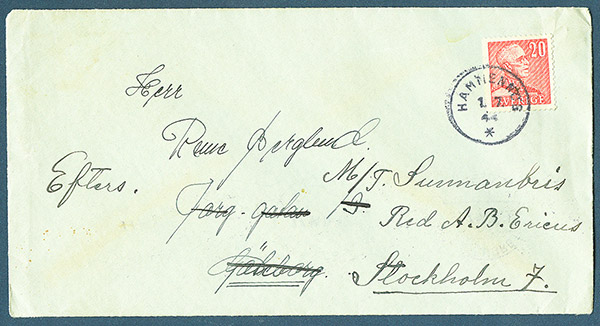 20
SVERIGE
HAMMENHÖG
1. 7.
44
Herr
Rune Berglund.
Efters.
M/T. Sunnanbris
Torg-gatan
Red A.B. Ericus
Göteborg.
Stockholm 7.